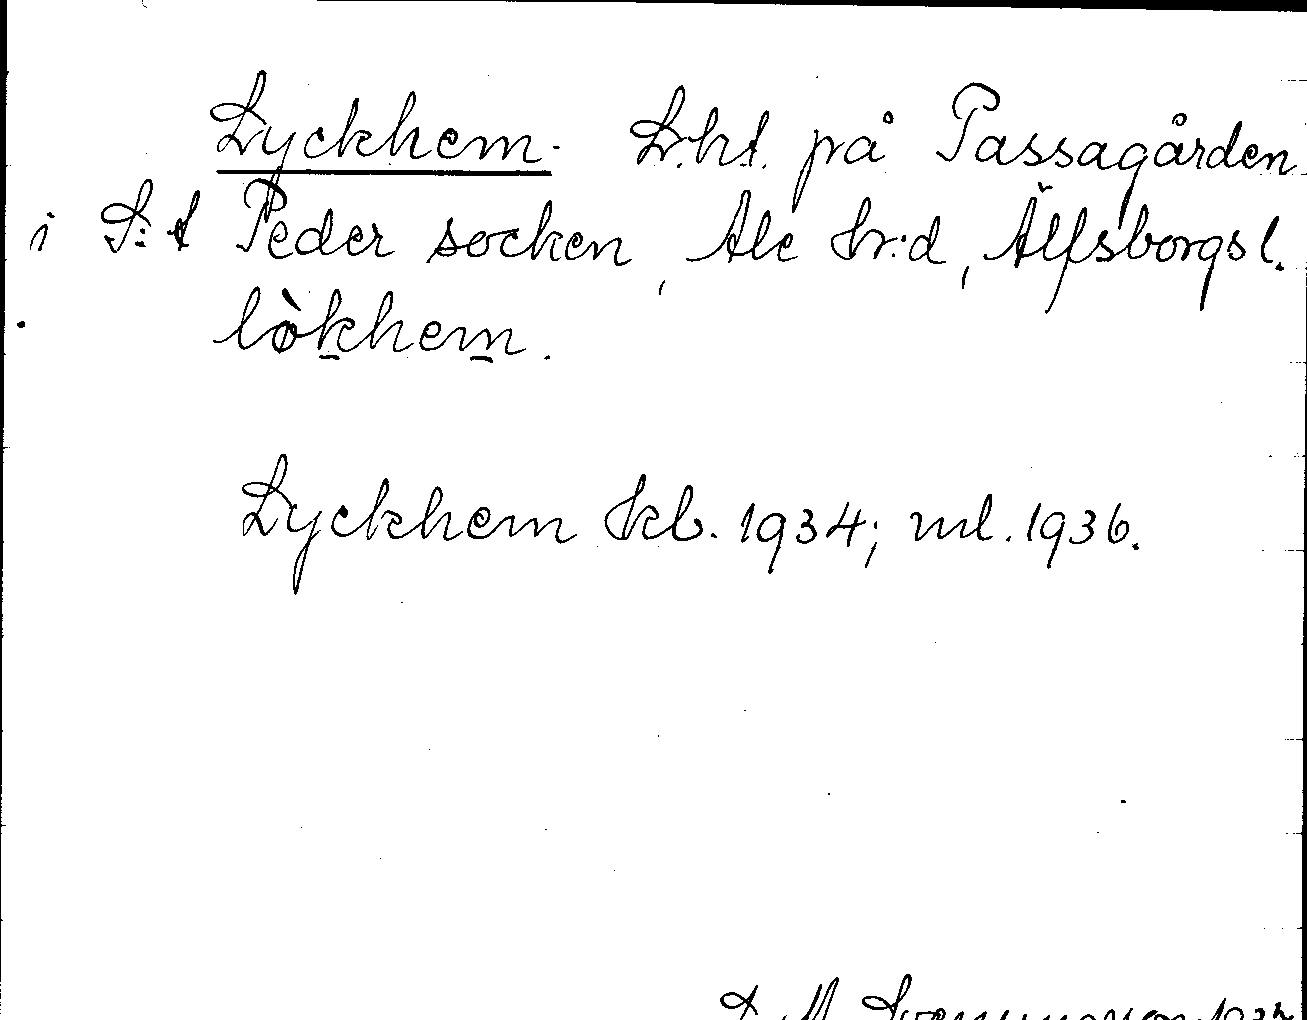 Lyckhem. L.ht. på Passagården
i S:t Peder socken, Ale hr:d, Älfsborgs l.
lòkhem.
Lyckhem kb. 1934; ml. 1936.